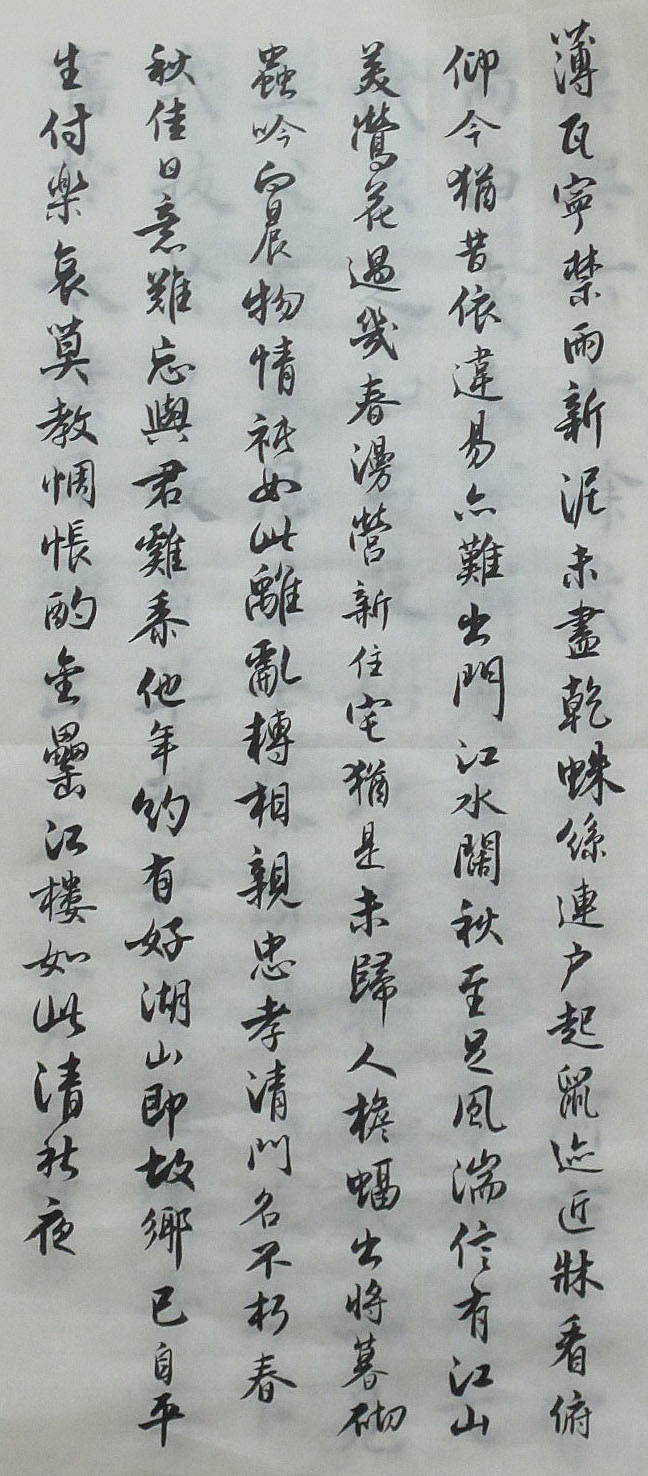 薄瓦寧禁雨新泥未盡乾蛛絲連户起鼠迹近牀看俯
仰今猶昔依違易亦難出門江水闊秋至足風湍信有江山
美鶯花過幾春漫營新住宅猶是未歸人檐蝠出將暮砌
蟲吟向晨物情祗如此離亂轉相親忠孝清門名不朽春
秋佳日意難忘與君雞黍他年約有好湖山即故鄉已自平
生付樂哀莫教惆悵酌金罍江樓如此清秋夜